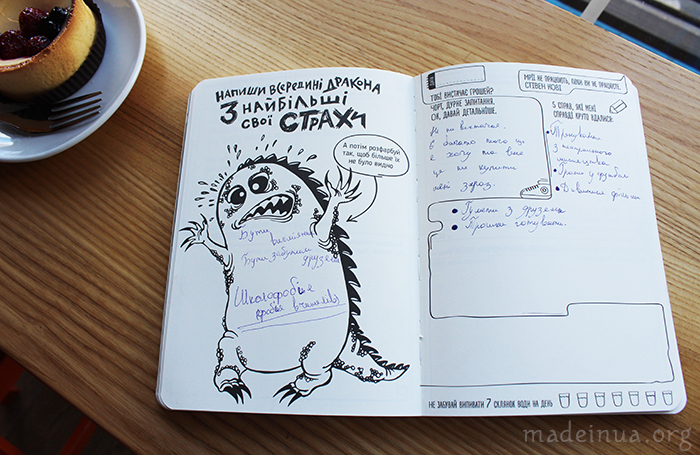 НАПИШИ ВСЕРЕДИНІ ДРАКОНА
3 НАЙБІЛЬШІ
СВОЇ СТРАХИ
А потім розфарбуй
так, щоб більше їх
не було видно
Бути
Бути забутим
друзями
Школофобія
ТОБІ ВИСТАЧАЄ ГРОШЕЙ?
ЧОРТ, ДУРНЕ ЗАПИТАННЯ.
ОК, ДАВАЙ ДЕТАЛЬНІШЕ.
Не не вистачає.
Є багато чого що
я хочу та вже
це не купити
зараз.
МРІЇ НЕ ПРАЦЮЮТЬ, ПОКИ ВИ НЕ ПРАЦЮЄТЕ.
СТІВЕН КОВІ
5 СПРАВ, ЯКІ МЕНІ
СПРАВДІ КРУТО ВДАЛИСЯ:
з
у
Дивитися фільми
Гуляти з друзями
Трошки готувати.
НЕ ЗАБУВАЙ ВИПИВАТИ 7 СКЛЯНОК ВОДИ НА ДЕНЬ
madeinua.org